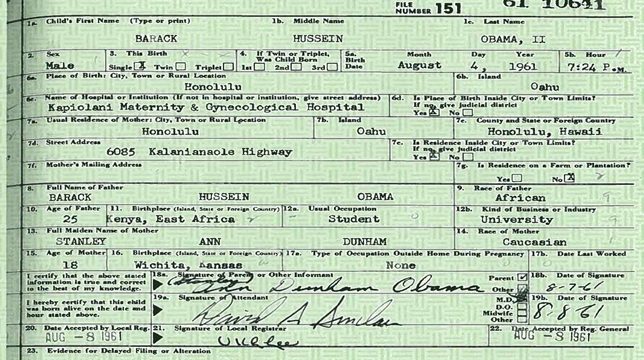 FILE NUMBER 151 61 10641
1a. Child's First Name (Type or print) 1b. Middle Name 1c. Last Name
BARACK HUSSEIN OBAMA, II
2. Sex 3. This Birth 4. If Twin or Triplet, Was Child Born 5a. Birth Date Month Day Year 5b. Hour
Male Single X Twin Triplet 1st 2nd 3rd August 4, 1961 7:24 P.M.
6a. Place of Birth: City, Town or Rural Location 6b. Island
Honolulu Oahu
6c. Name of Hospital or Institution (If not in hospital or institution, give street address) 6d. Is Place of Birth Inside City or Town Limits? If no, give judicial district
Kapiolani Maternity & Gynecological Hospital Yes X No
7a. Usual Residence of Mother: City, Town or Rural Location 7b. Island 7c. County and State or Foreign Country
Honolulu Oahu Honolulu, Hawaii
7d. Street Address 7e. Is Residence Inside City or Town Limits? If no, give judicial district
6085 Kalanianaole Highway Yes X No
7f. Mother's Mailing Address 7g. Is Residence on a Farm or Plantation?
Yes No X
8. Full Name of Father 9. Race of Father
BARACK HUSSEIN OBAMA African
10. Age of Father 11. Birthplace (Island, State or Foreign Country) 12a. Usual Occupation 12b. Kind of Business or Industry
25 Kenya, East Africa Student University
13. Full Maiden Name of Mother 14. Race of Mother
STANLEY ANN DUNHAM Caucasian
15. Age of Mother 16. Birthplace (Island, State or Foreign Country) 17a. Type of Occupation Outside Home During Pregnancy 17b. Date Last Worked
18 Wichita, Kansas None
I certify that the above stated information is true and correct to the best of my knowledge. 18a. Signature of Parent or Other Informant Parent Other 18b. Date of Signature
(Stanley) Ann Dunham Obama 8-7-61
I hereby certify that this child was born alive on the date and hour stated above. 19a. Signature of Attendant M.D. D.O. Midwife Other 19b. Date of Signature
David A Sinclair 8-8-61
20. Date Accepted by Local Reg. 21. Signature of Local Registrar 22. Date Accepted by Reg. General
AUG -8 1961 U K L Lee AUG -8 1961
23. Evidence for Delayed Filing or Alteration